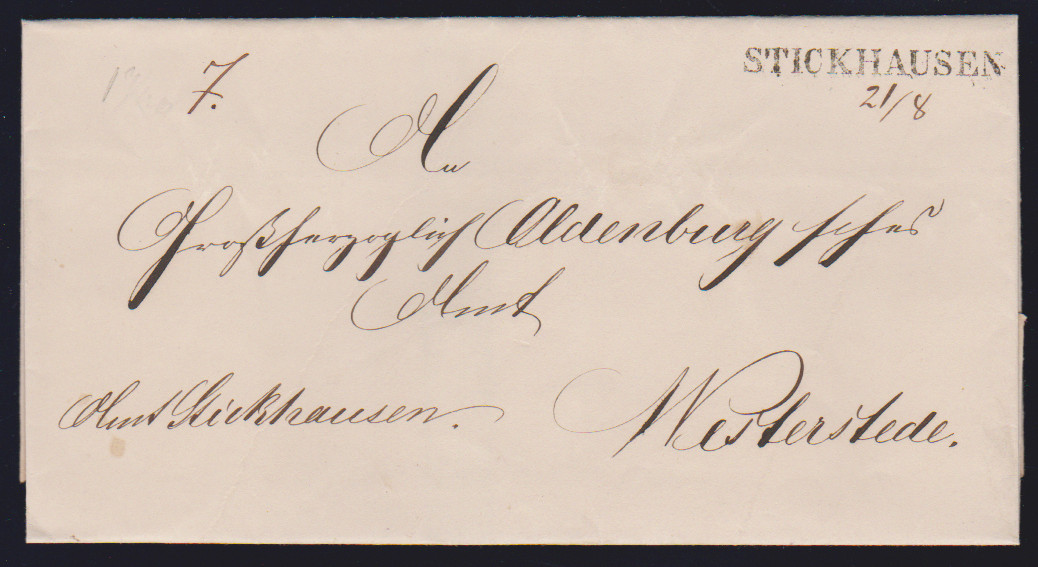 STICKHAUSEN
21/8
7.
An
Großherzoglich Oldenburgsches
Amt
Amt Stickhausen.
Westerstede.